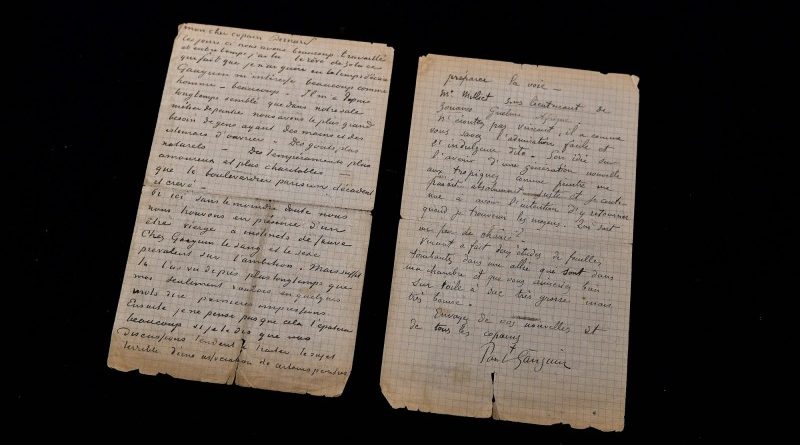 mon cher copain Bernard
les jours ci nous avons beaucoup travaillé
et entretemps j'ai lu le rêve de Zola ce
qui fait que je n'ai guère eu le temps d'écrire
Gauguin m'intéresse beaucoup comme
homme – beaucoup – Il m'a depuis
longtemps semblé que dans notre sale
métier de peintre nous avons le plus grand
besoin de gens ayant des mains et des
estomacs d'ouvrier – Des goûts plus
naturels – Des tempéraments plus
amoureux et plus charitables –
que le boulevardier parisien décadent
et crevé –
Or ici sans le moindre doute nous
nous trouvons en présence d'un
être vierge à instincts de fauve
Chez Gauguin le sang et le sexe
prévalent sur l'ambition. Mais suffit
tu l'as vu de près plus longtemps que
moi seulement voulais en quelques
mots dire premières impressions
Ensuite je ne pense pas que cela t'épatera
beaucoup si je te dis que nos
discussions tendent à traiter le sujet
terrible d'une association de certains peintres
préparer la voie –
Mr Milliet sous lieutenant de
zouaves Guelma Afrique
N'écoutez pas Vincent, il a comme
vous savez l'admiration facile et
l'indulgence dito. Son idée sur
l'avenir d'une génération nouvelle
aux tropiques comme peintre me
paraît absolument juste et je
à avoir l'intention d'y retourner
quand je trouverai les moyens. Qui sait
un peu de chance?
Vincent a fait deux études de feuilles
tombantes dans une allée qui sont dans
ma chambre et que vous aimeriez bien
sur toile à sac très grosse mais
très bonne.
Envoyez de vos nouvelles et
de tous les copains
Paul Gauguin